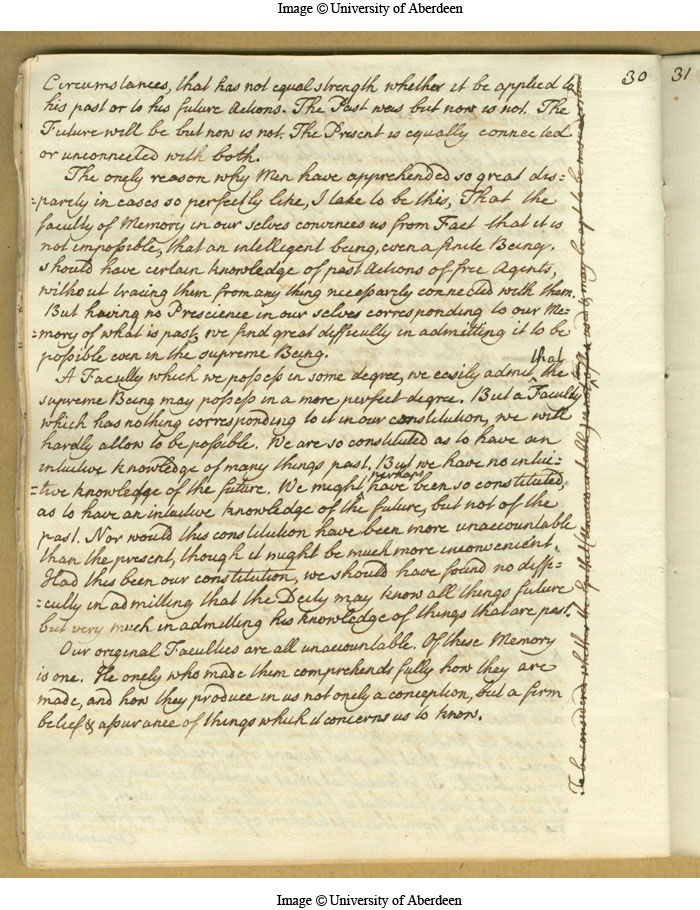 Image © University of Aberdeen
30
31
Circumstances, that has not equal strength whether it be applied to
his past or to his future Actions. The Past was but now is not. The
Future will be but now is not. The Present is equally connected
or unconnected with both.
The onely reason why Men have apprehended so great dis=
=parity in cases so perfectly like, I take to be this, That the
faculty of Memory in our selves convinces us from Fact that it is
not impossible, that an intelligent being, even a finite Being,
should have certain knowledge of past Actions of free Agents,
without tracing them from any thing necessarily connected with them.
But having no Prescience in our selves corresponding to our Me=
=mory of what is past, we find great difficulty in admitting it to be
possible even in the supreme Being.
A Faculty which we possess in some degree, we easily admit that the
supreme Being may possess in a more perfect degree. But a Faculty
which has nothing corresponding to it in our constitution, we will
hardly allow to be possible. We are so constituted as to have an
intuitive knowledge of many things past. But we have no intui=
=tive knowledge of the future. We might perhaps have been so constituted,
as to have an intuitive knowledge of the future, but not of the
past. Nor would this constitution have been more unaccountable
than the present, though it might be much more inconvenient.
Had this been our constitution, we should have found no diffi=
=culty in admitting that the Deity may know all things future
but very much in admitting his knowledge of things that are past.
Our original Faculties are all unaccountable. Of these Memory
is one. He onely who made them comprehends fully how they are
made, and how they produce in us not onely a conception, but a firm
belief & assurance of things which it concerns us to know.
To be considered whether the Epithet Unaccountable may be apt to be
Image © University of Aberdeen